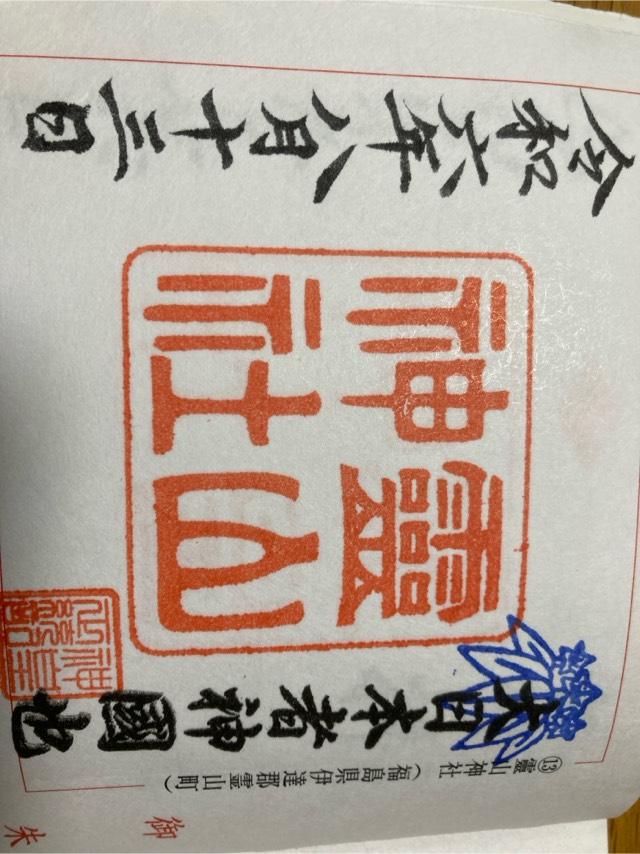 ⑬靈山神社
(福島県伊達郡霊山町)
大日本者神國也
靈山
神社
令和六年八月十三日
御
朱